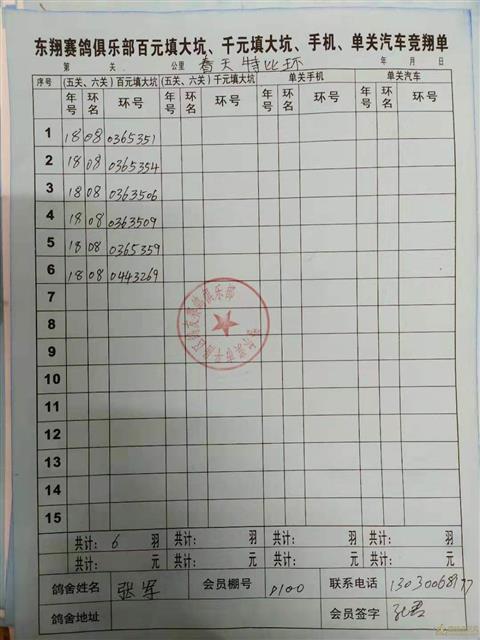 东翔赛鸽俱乐部百元填大坑、千元填大坑、手机、单关汽车竞翔单
第 关 公里 春天特比环 年 月 日
序号 (五关、六关)百元填大坑 (五关、六关)千元填大坑 单关手机 单关汽车
年号 环名 环号 年号 环名 环号 年号 环名 环号 年号 环名 环号
1 18 08 0365351
2 18 08 0365354
3 18 08 0363506
4 18 08 0363509
5 18 08 0365359
6 18 08 0443269
7
8
9
10
11
12
13
14
15
共计: 6 羽 共计: 羽 共计: 羽 共计: 羽
共计: 元 共计: 元 共计: 元 共计: 元
鸽舍姓名 张军 会员棚号 0100 联系电话
鸽舍地址 会员签字